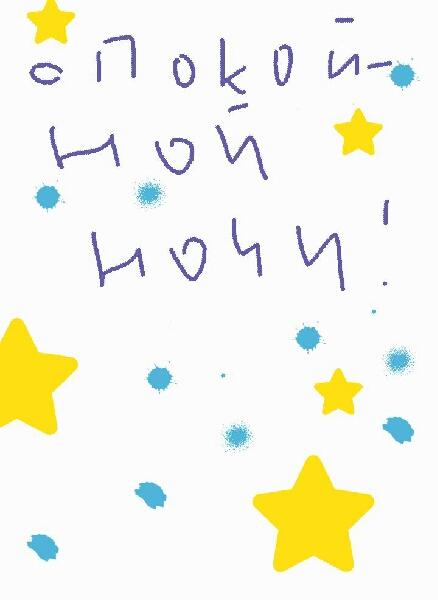 спокой-
ной
ночи!